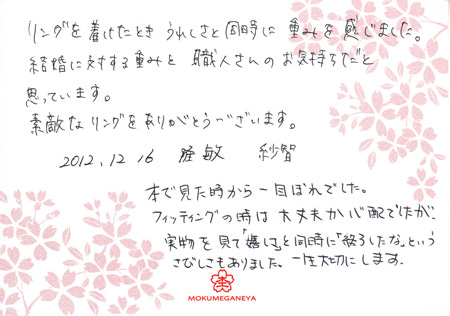 リングを着けたとき うれしさと同時に 重みを感じました。
結婚に対する重みと 職人さんのお気持ちだと
思っています。
素敵なリングをありがとうございます。
2012.12 16 隆敏 紗智
本で見た時から一目ぼれでした。
フィッティングの時は大丈夫か心配でしたが、
実物を見て「嬉しい」と同時に「終了したな」という
さびしさもありました。一生大切にします。
MOKUMEGANEYA